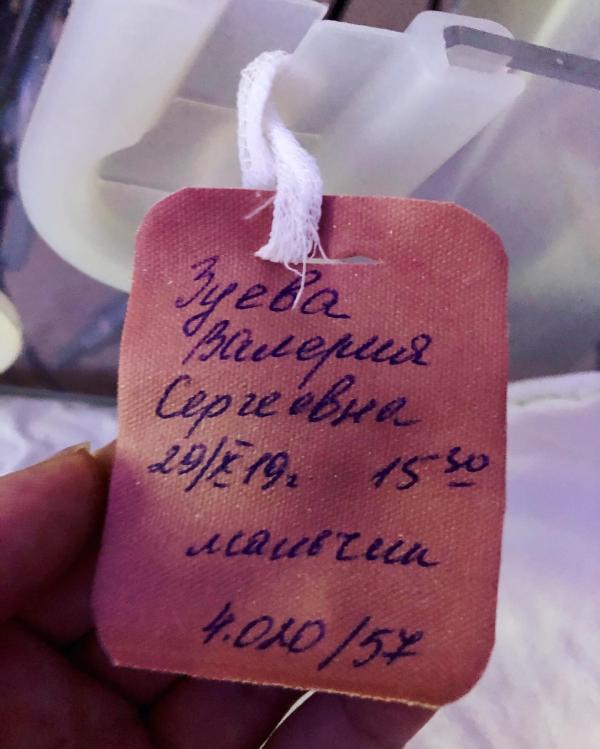 Зуева
Валерия
Сергеевна
29/X 19г. 15 30
мальчик
4.020/57